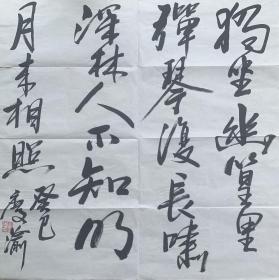 獨坐幽篁里
彈琴復長嘯
深林人不知明
月来相照
癸巳